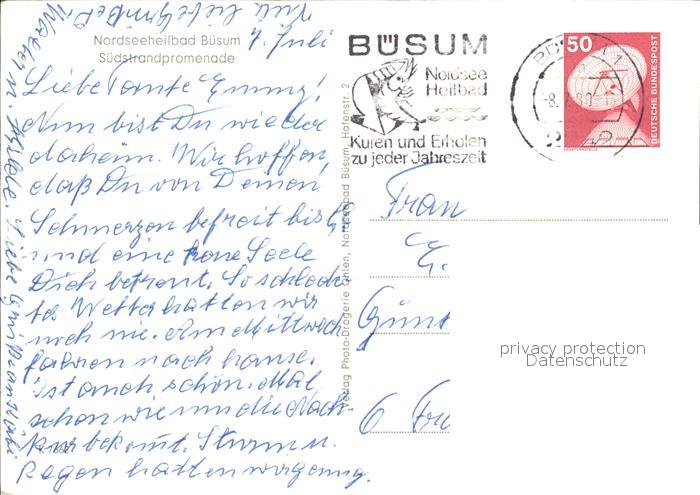 Viele liebe Grüße
Nordseeheilbad Büsum
Südstrandpromenade
7. Juli
Liebe Tante Emmy!
Nun bist Du wieder
daheim. Wir hoffen,
daß Du von Deinen
Schmerzen befreit bist
und eine treue Seele
Dich betreut. So schlech-
tes Wetter hatten wir
noch nie. Am Mittwoch
fahren nach hause.
Ist auch schön. Mal
schon wie uns die Nach-
kur bekomt. Sturm u.
Regen hatten wir genug.
Walter
u. Hilde. Liebe Grüße an
Verlag Photo-Drogerie Ohlen, Nordseebad Büsum, Hafenstr. 2
BÜSUM
Nordsee
Heilbad
Kuren und Erholen
zu jeder Jahreszeit
50
DEUTSCHE BUNDESPOST
Frau
E.
Günt
6 Fr
privacy protection
Datenschutz